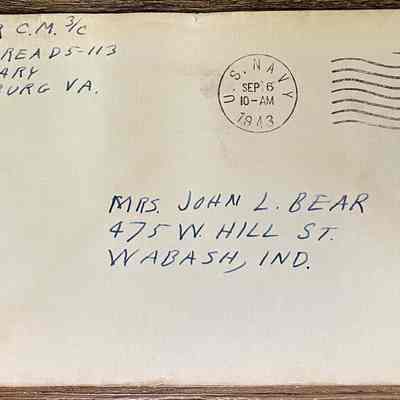 R C.M. 3/C
READ 5-113
ARY
BURG VA.
U.S. NAVY
SEP 6
10-AM
1943
MRS. JOHN L. BEAR
475 W. HILL ST.
WABASH, IND.